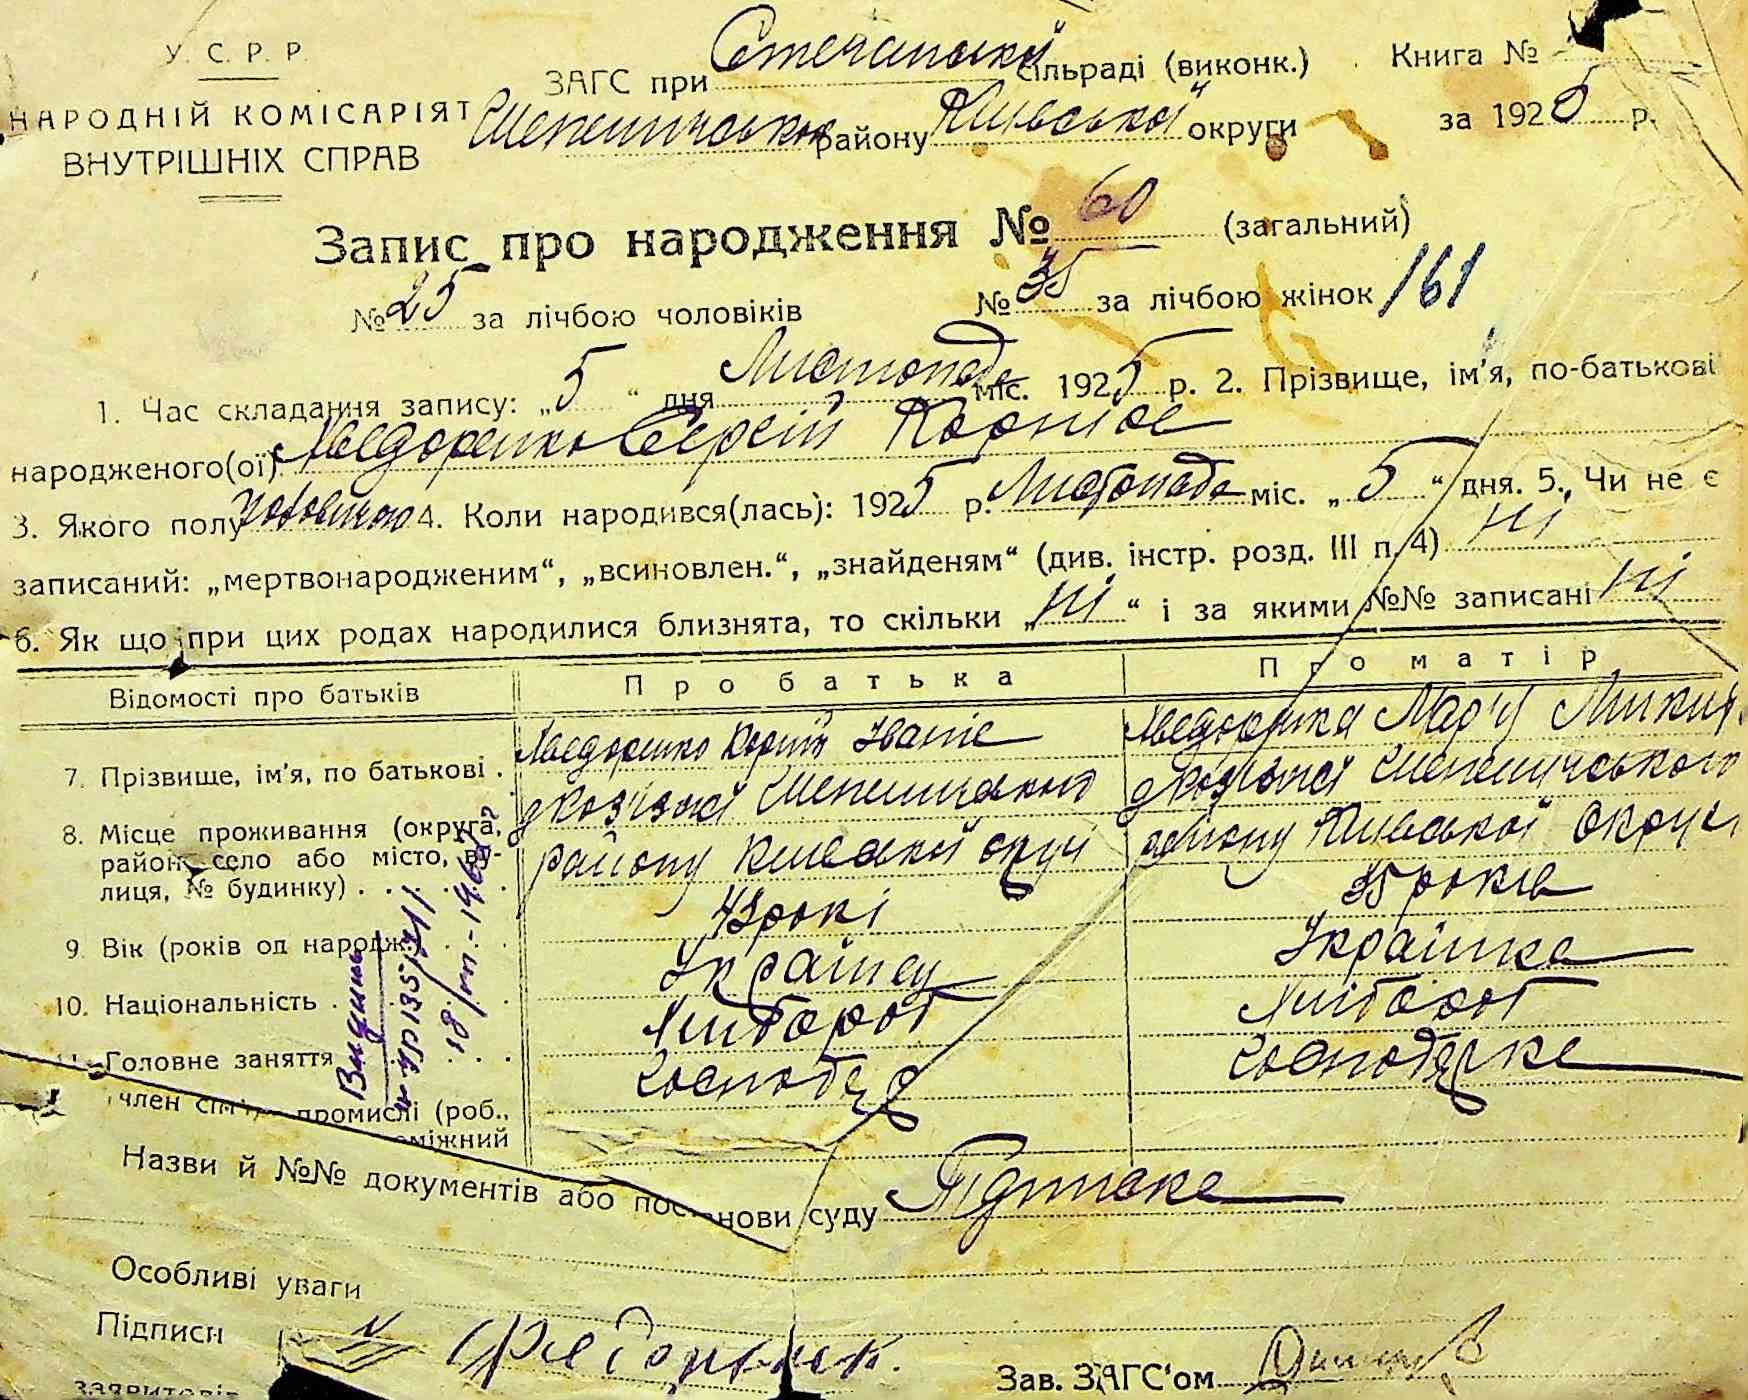 У. С. Р. Р.
НАРОДНІЙ КОМІСАРІЯТ
ВНУТРІШНІХ СПРАВ
ЗАГС при Стечанській сільраді (виконк.) Книга №
Шепелицького району Київської округи за 1925 р.
Запис про народження № 60 (загальний)
№ 25 за лічбою чоловіків № 35 за лічбою жінок 161
1. Час складання запису: „5“ дня Листопада міс. 1925 р. 2. Прізвище, ім'я, по-батькові
народженого(ої) Сергій Корніє
3. Якого полу 4. Коли народився(лась): 1925 р. Листопада міс. „5“ дня. 5. Чи не є
записаний: „мертвонародженим“, „всиновлен.“, „знайденям“ (див. інстр. розд. III п. 4) ні
6. Як що при цих родах народилися близнята, то скільки „ні“ і за якими №№ записані ні
Відомості про батьків Про батька Про матір
7. Прізвище, ім'я, по батькові . Корній Іваніє Мар'я Микит
8. Місце проживання (округа, район, село або місто, вулиця, № будинку) . . . Шепелицького району Київської округи Шепелицького району Київської Округи
9. Вік (років од народж. 43 рокі 35 років
10. Національність . Українец Українка
11. Головне заняття Хлібороб Хлібороб
член сім'ї, промислі (роб., Господар Господарка
Видании
18/III-19
Назви й №№ документів або постанови суду Підписка
Особливі уваги
Підписи
заявителів
Зав. ЗАГС'ом